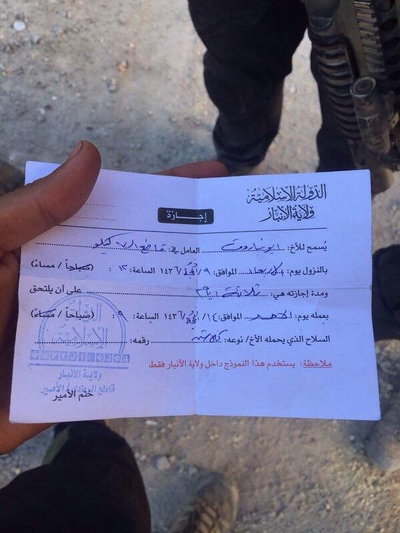 الدولة الإسلامية
ولاية الأنبار
إجازة
يُسمح للأخ: ابو فاروق العامل في: قاطع الـ ٧ كيلو
بالنزول يوم: الموافق: ٩/ /١٤٣٦ الساعة: ١٢ (صباحاً / مساءً)
ومدة إجازته هي: ثلاثة ايام على أن يلتحق
بعمله يوم: الاحد الموافق: ١٤/ /١٤٣٦ الساعة: ٩ (صباحاً / مساءً)
السلاح الذي يحمله الأخ / نوعه: رقمه:
ملاحظة: يستخدم هذا النموذج داخل ولاية الأنبار فقط
الدولة الإسلامية
ولاية الانبار
ختم الأمير